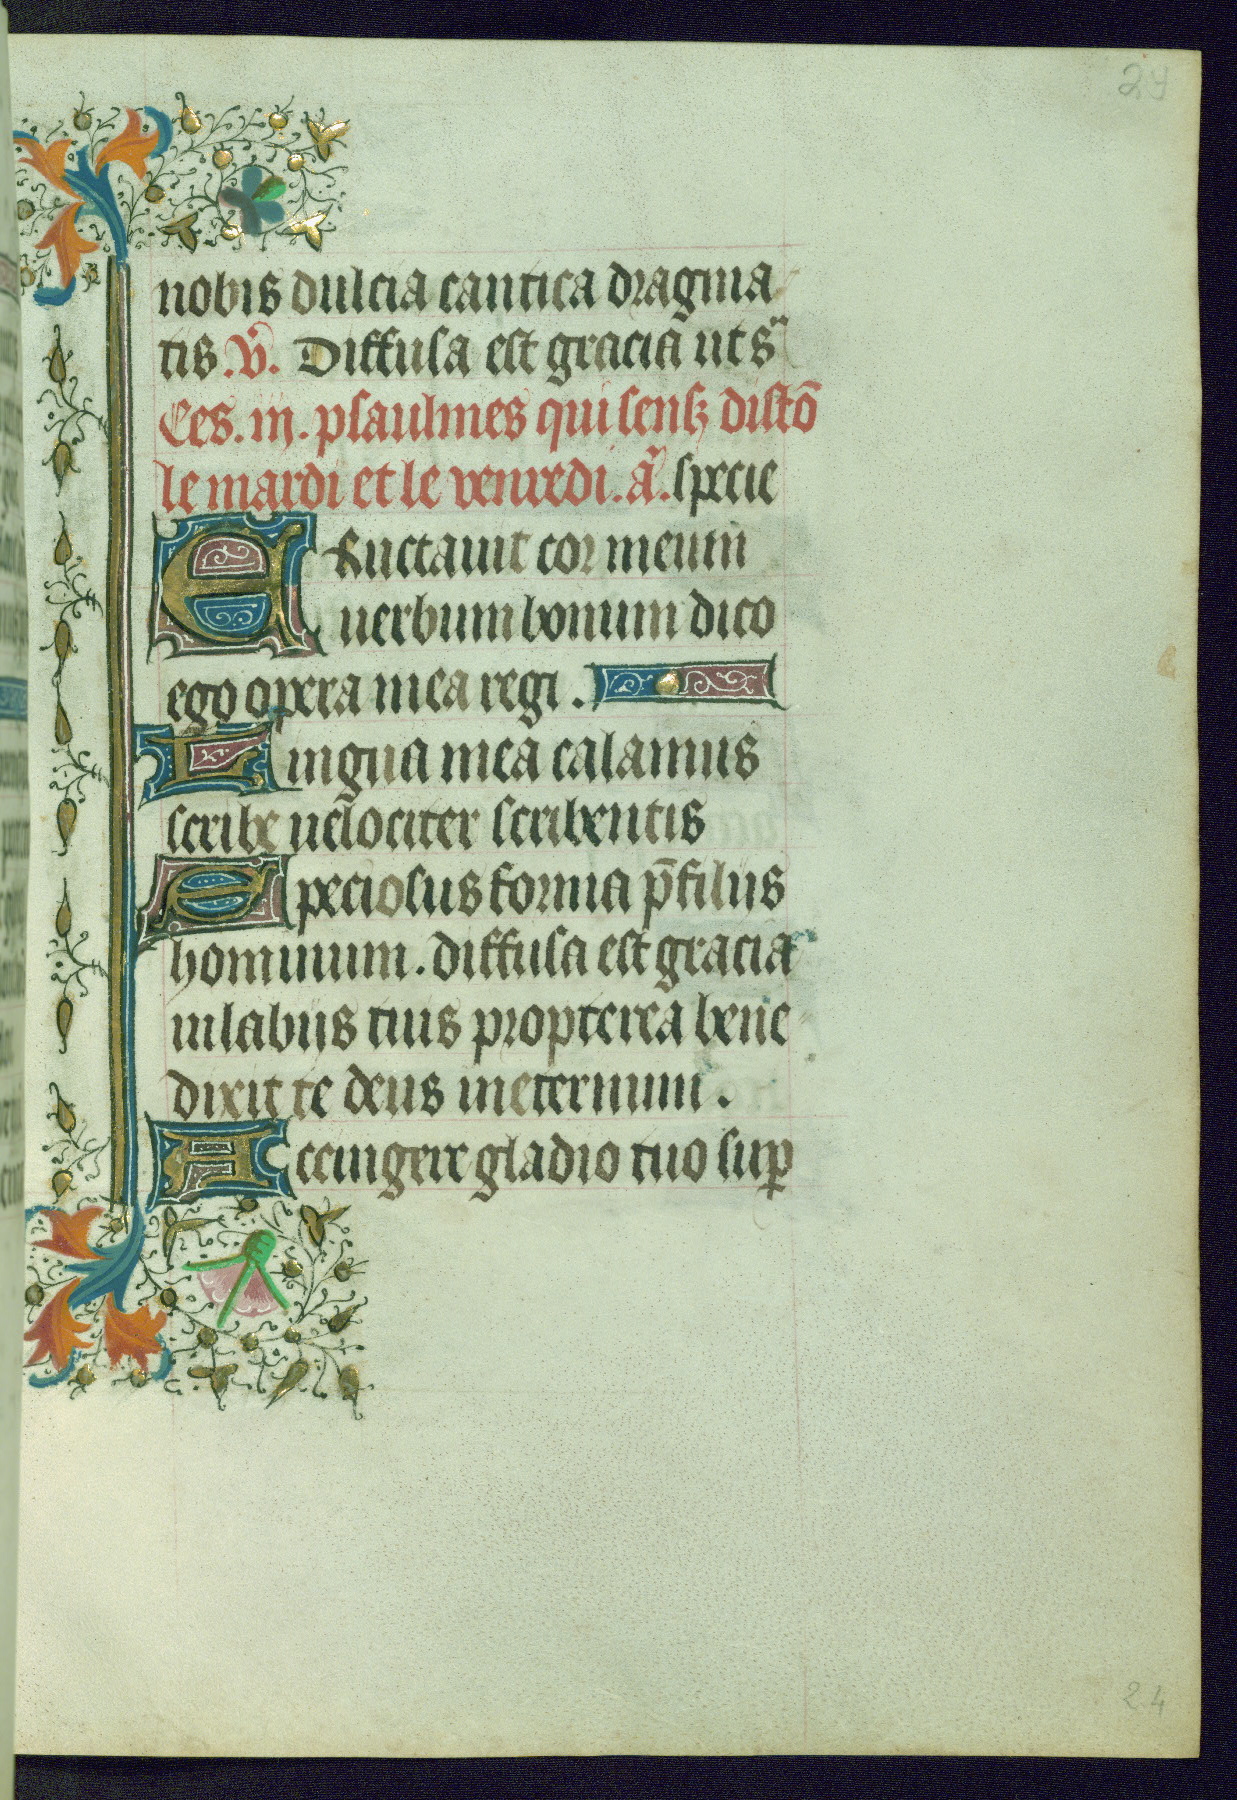 29
nobis dulcia cantica dragma
tis. V̄. Diffusa est gracia ut sᵃ
Ces. iij. psaulmes qui senß dist̄o
le mardi et le venredi. a᷎. specie
Eructauit cor meum
uerbum bonum dico
ego opera mea regi.
Lingua mea calamus
scribe uelociter scribentis
Speciosus forma p̄ filiis
hominum. diffusa est gracia
in labiis tuis propterea bene
dixit te deus in eternum.
Accingere gladio tuo suꝑ
24